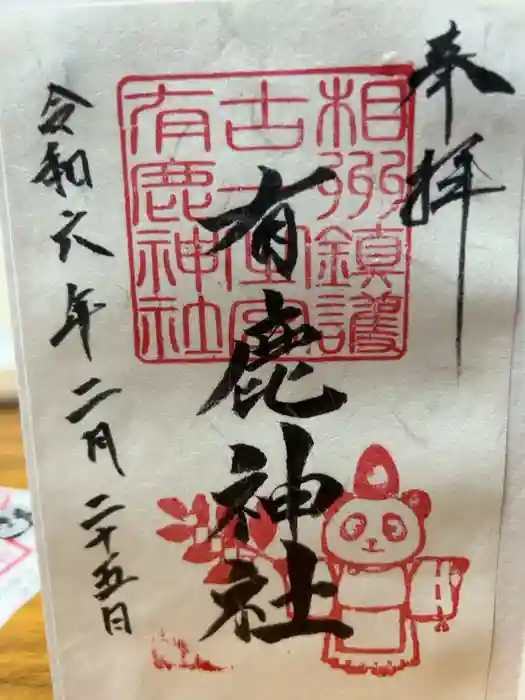 奉拝
相州鎮護
古
有鹿神社
有鹿神社
令和六年二月二十五日